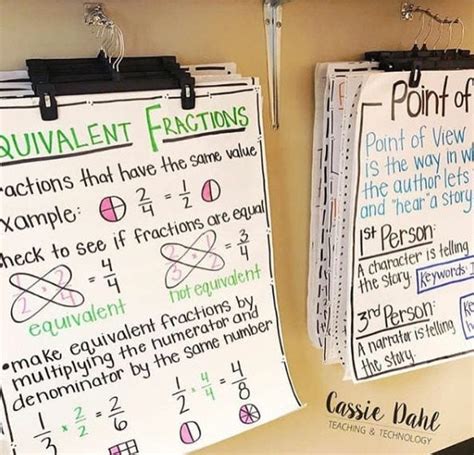 QUIVALENT FRACTIONS
actions that have the same value
xample: 2/4 = 1/2
heck to see if fractions are equal
2 2 2 4 = 4/4
2 3 2 1 = 3/4
equivalent
not equivalent
•make equivalent fractions by
multiplying the numerator and
denominator by the same number
1/3 × 2/2 = 2/6
1/2 · 4/4 = 4/8
Point of
Point of View
is the way in
the author lets
and "hear" a story
1st Person:
A character is telling
the story.
Keywords:
3rd Person:
A narrator is telling
the story.
Cassie Dahl
TEACHING & TECHNOLOGY